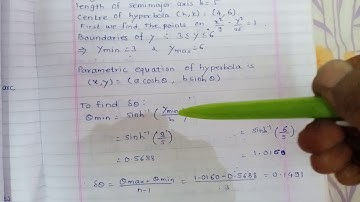 length of semimajor axis b = 5
Centre of hyperbola (h,k) = (4,6)
First we find the points on x²/ - y²/ = 1
Boundaries of y : 3 ≤ y ≤ 6
⇒ Ymin = 3 & Ymax = 6
Parametric equation of hyperbola is
(x,y) = (a coshθ, b sinhθ)
arc
To find δθ :
θmin = sinh⁻¹ (Ymin/b)
= sinh⁻¹ (3/5) = sinh⁻¹ (6/5)
= 0.5688 = 1.0160
δθ = θmax - θmin / n-1 = 1.0160 - 0.5688 / 3 = 0.1491